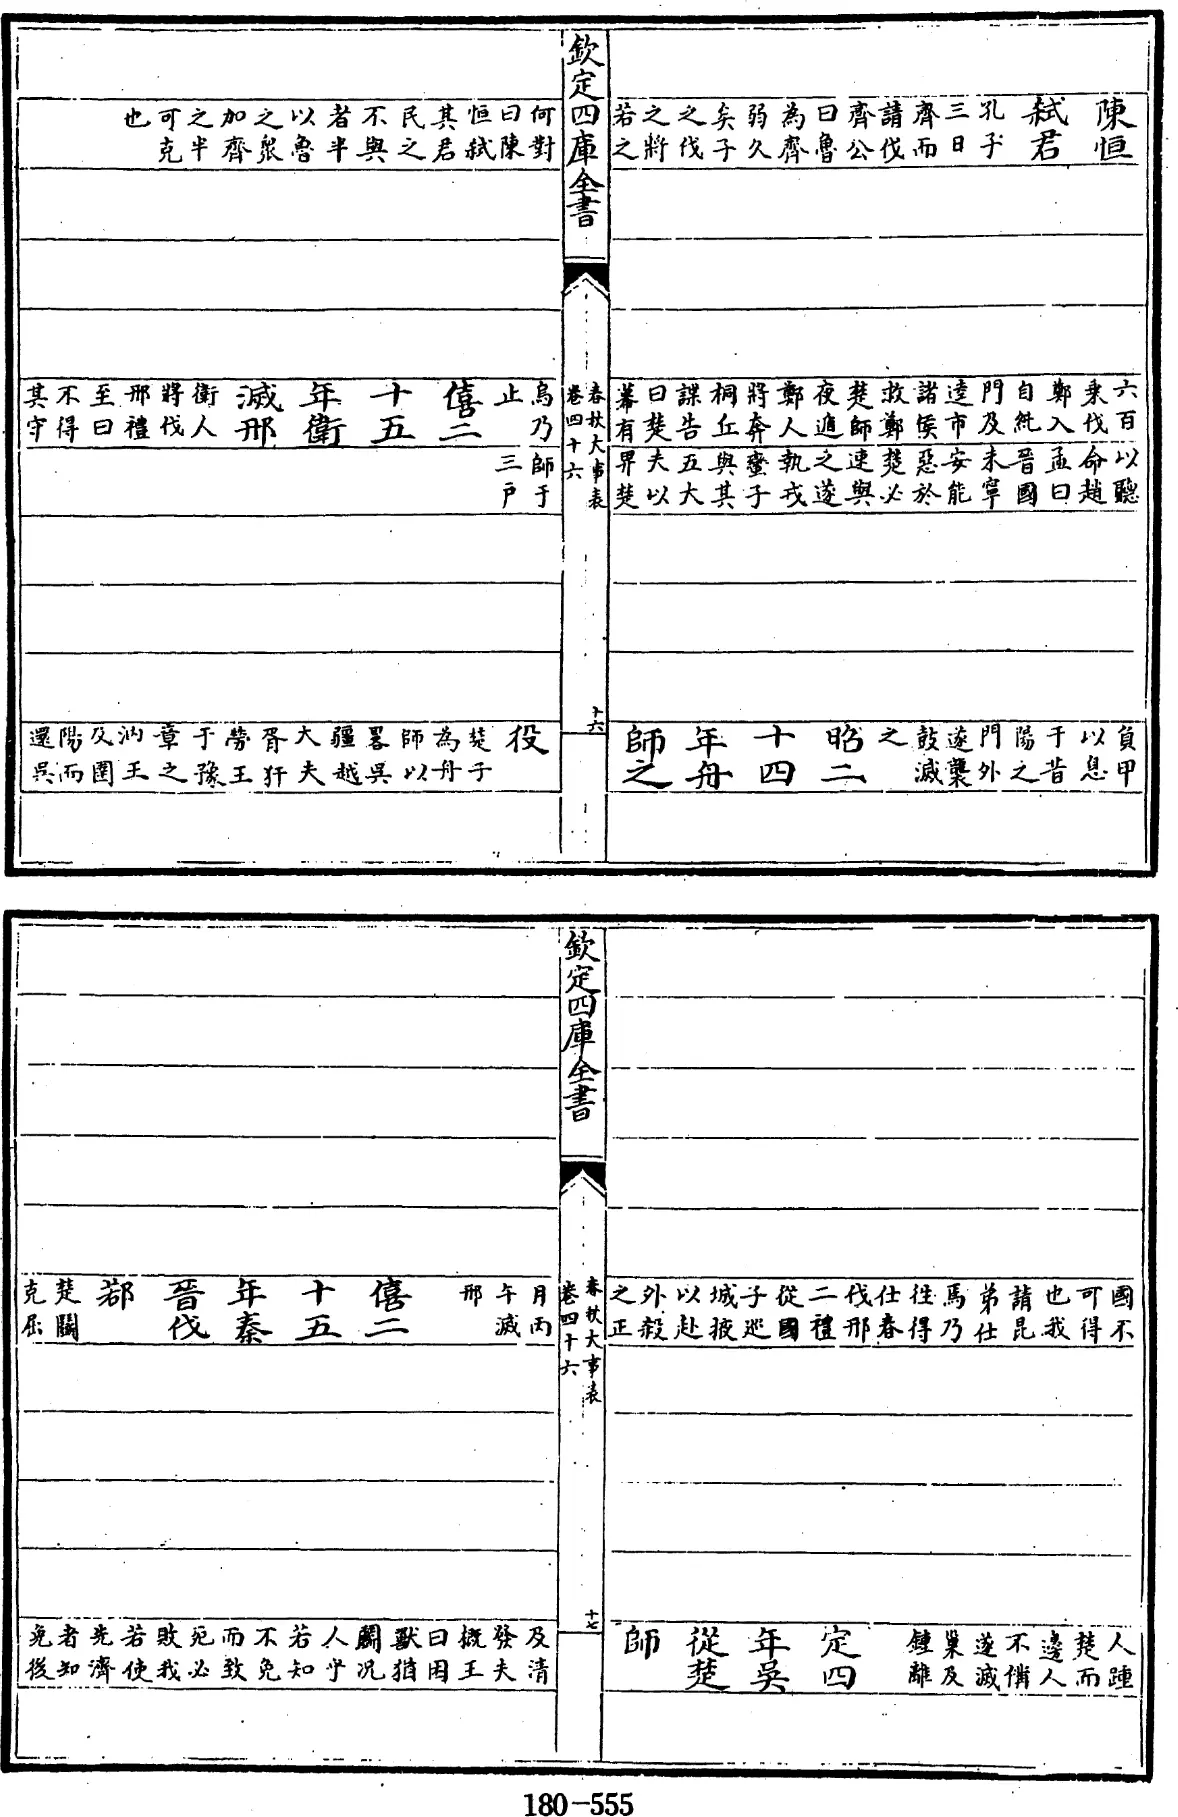 欽定四庫全書
陳恒弑君孔子三日齊而請伐齊公曰魯為齊弱久矣子之伐之將若之
六百乘伐鄭入自純門及逵市諸侯救鄭楚師夜遁鄭人將奔桐丘諜告曰楚幕有
以聽命趙孟曰晉國未寧安能惡於楚必速與之遂執戎蠻子與其五大夫以畀楚
負甲以息于昔陽之門外遂襲鼓滅之昭二十四年舟師之
春秋大事表
卷四十六
十六
何對曰陳恒弑其君民之不與者半以魯之衆加齊之半可克也
烏乃止僖二十五年衛滅邢衛人將伐邢禮至曰不得其守
師于三戶
役楚子為舟師以畧吳疆越大夫胥犴勞王于豫章之汭王及圉陽而還吳
欽定四庫全書
國不可得也我請昆弟仕馬乃往得仕春伐邢二禮從國子巡城掖以赴外殺之正
人踵楚而邊人不備遂滅巢及鍾離定四年吳從楚師
春秋大事表
卷四十六
十七
月丙午滅邢僖二十五年秦晉伐鄀楚鬬克屈
及清發夫概王曰困獸猶鬬況人乎若知不免而致死必敗我若使先濟者知免後
180-555